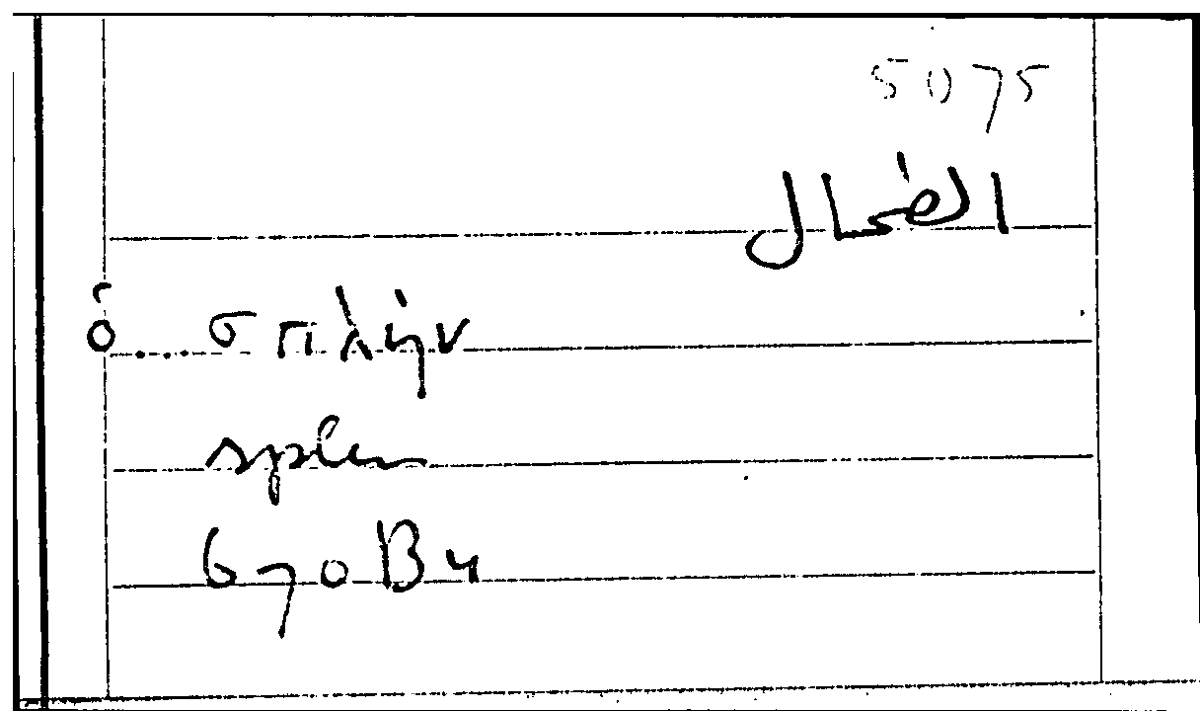 5075
الطحال
ὁ....σπλήν
splen
670B4